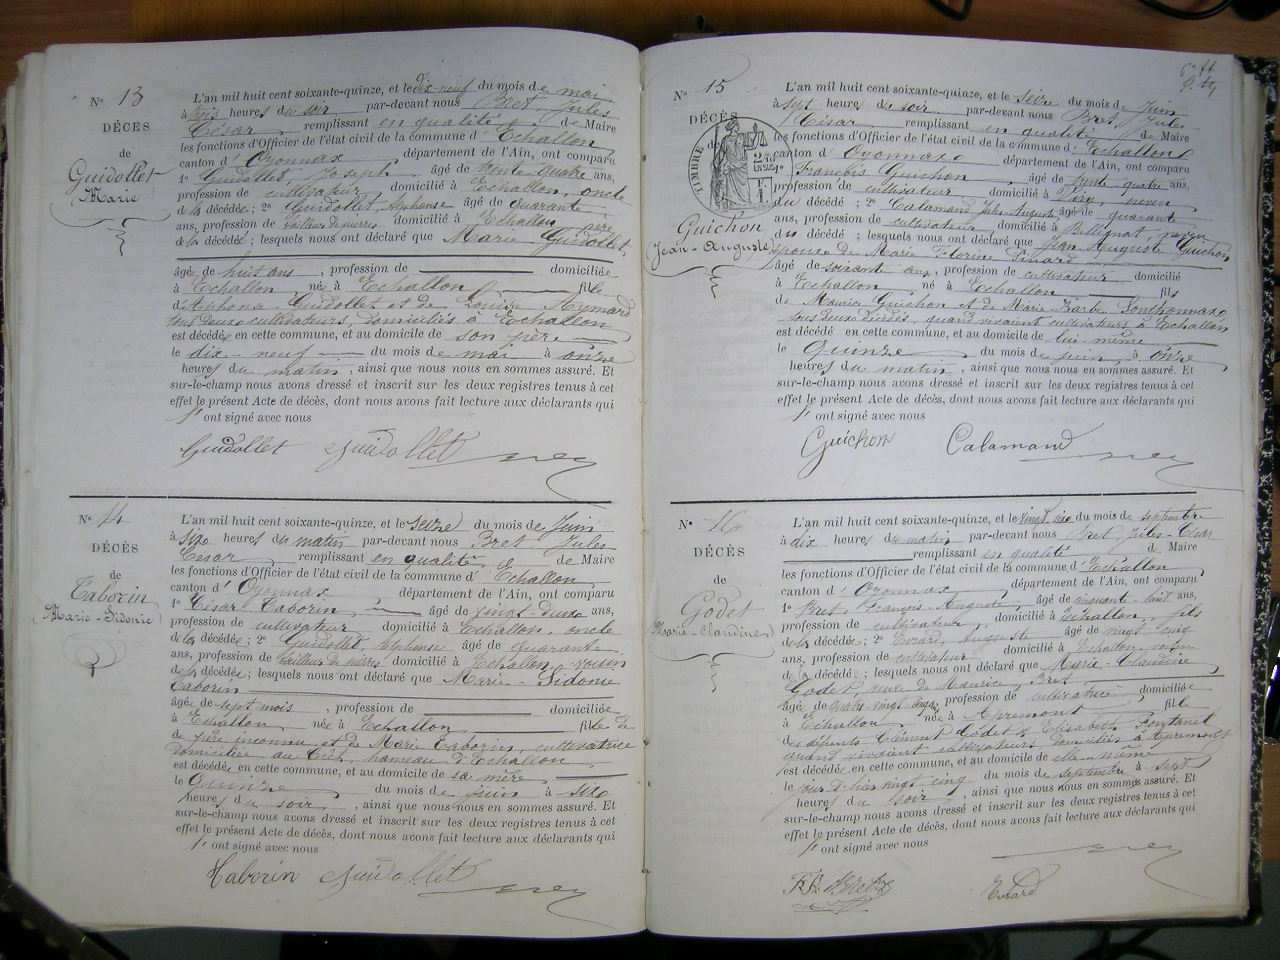 N° 13
DÉCÈS
de
Guidollet
Marie
L'an mil huit cent soixante-quinze, et le dix-neuf du mois de mai
à trois heures du soir par-devant nous Bret Jules
César remplissant en qualité de Maire
les fonctions d'Officier de l'état civil de la commune d'Echallon
canton d'Oyonnax département de l'Ain, ont comparu
1° Guidollet Joseph âgé de trente quatre ans,
profession de cultivateur, domicilié à Echallon, oncle
de la décédée; 2° Guidollet Alphonse âgé de quarante
ans, profession de tailleur de pierres domicilié à Echallon père
de la décédée; lesquels nous ont déclaré que Marie Guidollet,
âgée de huit ans, profession de domiciliée
à Echallon, née à Echallon fille
d'Alphonse Guidollet et de Louise Aymard
tous deux cultivateurs, domiciliés à Echallon
est décédée en cette commune, et au domicile de son père
le dix-neuf du mois de mai à onze
heures du matin, ainsi que nous nous en sommes assuré. Et
sur-le-champ nous avons dressé et inscrit sur les deux registres tenus à cet
effet le présent Acte de décès, dont nous avons fait lecture aux déclarants qui
ont signé avec nous
Guidollet Guidollet
N° 14
DÉCÈS
de
Taborin
Marie-Sidonie
L'an mil huit cent soixante-quinze, et le seize du mois de Juin
à six heures du matin par-devant nous Bret Jules
César remplissant en qualité de Maire
les fonctions d'Officier de l'état civil de la commune d'Echallon
canton d'Oyonnax, département de l'Ain, ont comparu
1° César Taborin âgé de vingt-deux ans,
profession de cultivateur domicilié à Echallon, oncle
de la décédée; 2° Guidollet Alphonse âgé de quarante
ans, profession de tailleur de pierres domicilié à Echallon voisin
de la décédée; lesquels nous ont déclaré que Marie-Sidonie
Taborin
âgée de sept mois, profession de domiciliée
à Echallon née à Echallon fille de
de père inconnu et de Marie Taborin, cultivatrice
domiciliée au Crêt, hameau d'Echallon
est décédée en cette commune, et au domicile de sa mère
le Quinze du mois de juin à six
heures du soir, ainsi que nous nous en sommes assuré. Et
sur-le-champ nous avons dressé et inscrit sur les deux registres tenus à cet
effet le présent Acte de décès, dont nous avons fait lecture aux déclarants qui
ont signé avec nous
Taborin Guidollet
N° 15
DÉCÈS
de
TIMBRE
Guichon
Jean-Auguste
L'an mil huit cent soixante-quinze, et le seize du mois de Juin
à sept heures du soir, par-devant nous Bret Jules
César remplissant en qualité de Maire
les fonctions d'Officier de l'état civil de la commune d'Echallon
canton d'Oyonnax département de l'Ain, ont comparu
1° François Guichon âgé de trente quatre ans,
profession de cultivateur domicilié à neveu
du décédé; 2° Calamand Jules Auguste âgé de quarante
ans, profession de cultivateur domicilié à Bellignat
du décédé; lesquels nous ont déclaré que Jean Auguste Guichon
époux de Marie Florine
âgé de soixante ans, profession de cultivateur domicilié
à Echallon né à Echallon fils
de Maurice Guichon et de Marie Barbe
tous deux décédés, quand vivaient cultivateurs à Echallon
est décédé en cette commune, et au domicile de lui-même
le Quinze du mois de juin, à onze
heures du matin, ainsi que nous nous en sommes assuré. Et
sur-le-champ nous avons dressé et inscrit sur les deux registres tenus à cet
effet le présent Acte de décès, dont nous avons fait lecture aux déclarants qui
ont signé avec nous
Guichon Calamand
N° 16
DÉCÈS
de
Godet
Marie-Claudine
L'an mil huit cent soixante-quinze, et le vingt six du mois de septembre
à dix heures du matin par-devant nous Bret Jules-César
remplissant en qualité de Maire
les fonctions d'Officier de l'état civil de la commune d'Echallon
canton d'Oyonnax, département de l'Ain, ont comparu
1° Bret François-Auguste, âgé de cinquante-huit ans,
profession de cultivateur, domicilié à Echallon, fils
de la décédée; 2° Evrard Auguste âgé de vingt cinq
ans, profession de cultivateur domicilié à Echallon voisin
de la décédée; lesquels nous ont déclaré que Marie-Claudine
Godet, veuve de Maurice Bret
âgée de quatre vingt onze, profession de cultivatrice domiciliée
à Echallon née à Apremont fille
des défunts Clément Godet & Elisabeth Fontanel
quand vivaient cultivateurs domiciliés à Apremont
est décédée en cette commune, et au domicile de elle-même
le jour d'hier vingt cinq du mois de septembre à sept
heures du soir, ainsi que nous nous en sommes assuré. Et
sur-le-champ nous avons dressé et inscrit sur les deux registres tenus à cet
effet le présent Acte de décès, dont nous avons fait lecture aux déclarants qui
ont signé avec nous
Evrard